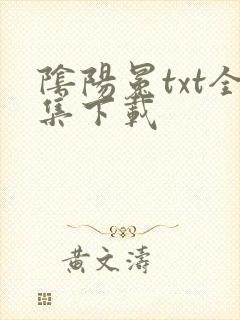 陰陽冕txt全
集下載
黃文濤